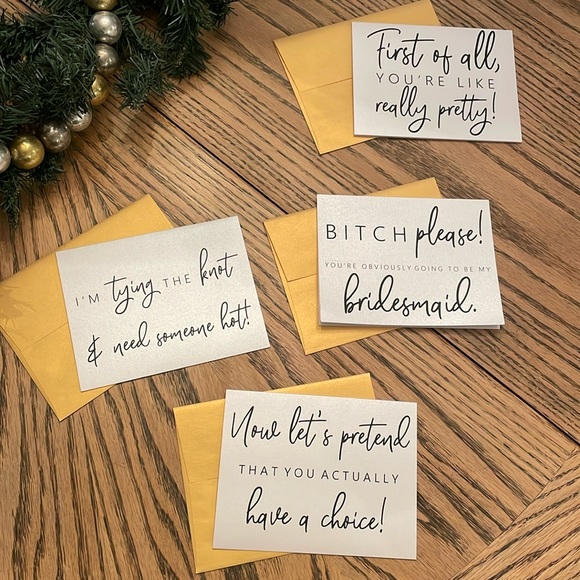 First of all,
YOU'RE LIKE
really pretty!
BITCH please!
YOU'RE OBVIOUSLY GOING TO BE MY
bridesmaid.
I'M tying THE knot
& need someone hot!
Now let's pretend
THAT YOU ACTUALLY
have a choice!